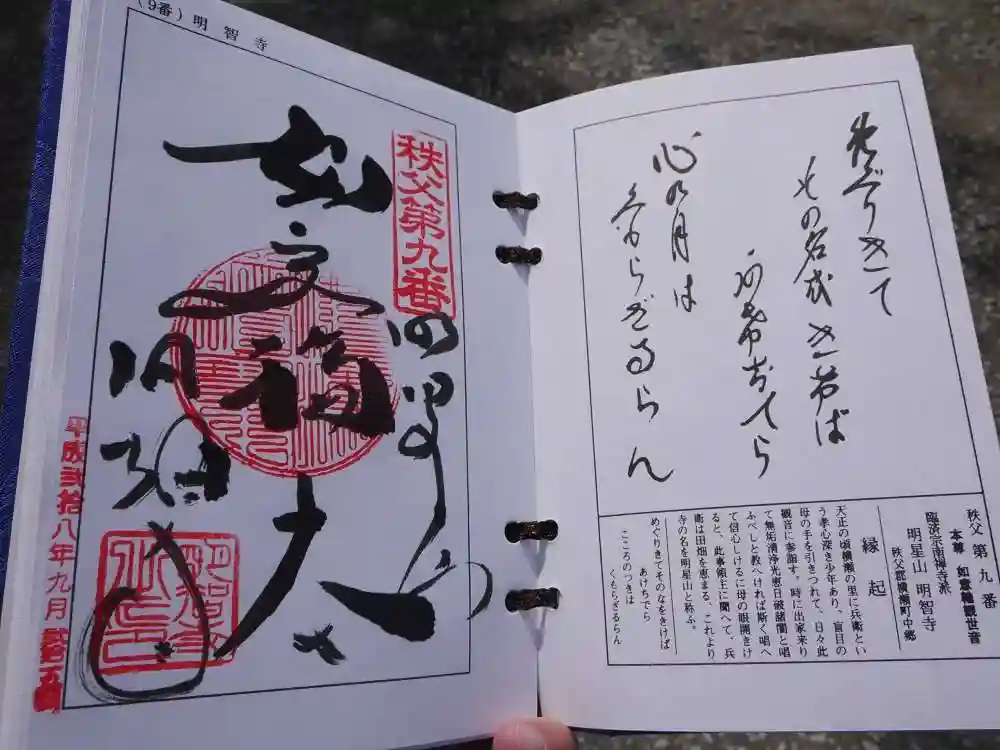 めぐりきて
その名をきけば
あけちでら
心の月は
くもらざるらん
秩父第九番
本尊 如意輪観世音
臨済宗南禅寺派
明星山 明智寺
秩父郡横瀬町中郷
縁起
天正の頃横瀬の里に兵衛とい
う孝心深き少年あり、盲目の
母の手を引きつれて、日々此
観音に参詣す。時に出家来り
て無垢清浄光恵日破諸闇と唱
ふべしと教へければ斯く唱へ
て信心しけるに母の眼開きけ
ると、此事領主に聞へて、兵
衛は田畑を恵まる、これより
寺の名を明星山と称ふ。
めぐりきてそのなをきけば
あけちでら
こころのつきは
くもらざるらん
(9番)明智寺
秩父第九番
大
平成弐拾八年九月